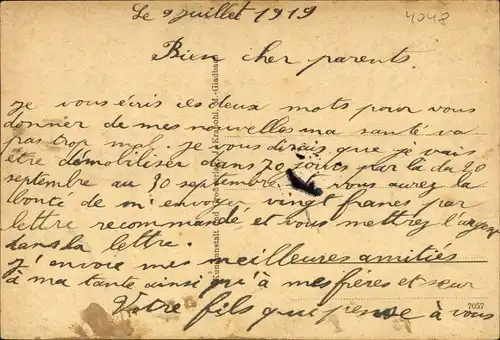 Le 9 Juillet 1919
4048
Bien cher parents.
je vous écris ces deux mots pour vous
donner de mes nouvelles ma santé va
pas trop mal. je vous dirais que je vais
être démobiliser dans 70 jours par là du 20
septembre au 30 septembre et vous aurez la
bonté de m'envoyer vingt francs par
lettre recommandé et vous mettrez l'argent
dans la lettre.
j'envoie mes meilleures amitiés
à ma tante ainsi qu'à mes frères et sœur
Votre fils qui pense à vous
7057